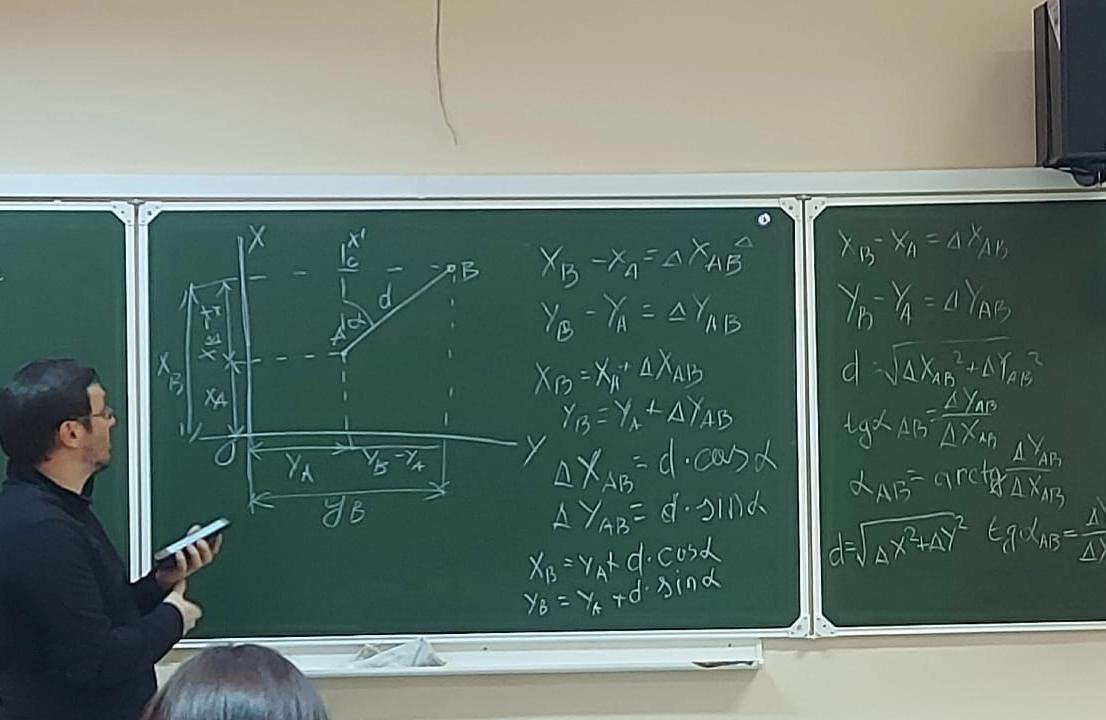 X
X'
C
B
d
A
α
X_B
X_A
O
Y
Y_A
Y_B - Y_A
y_B
X_B - X_A = Δ X_AB
Y_B - Y_A = Δ Y_AB
X_B = X_A + ΔX_AB
Y_B = Y_A + ΔY_AB
ΔX_AB = d · cos α
ΔY_AB = d · sin α
X_B = Y_A + d · cos α
Y_B = Y_A + d · sin α
X_B - X_A = Δ X_AB
Y_B - Y_A = Δ Y_AB
d = √(ΔX_AB² + ΔY_AB²)
tg α_AB = ΔY_AB / ΔX_AB
α_AB = arctg ΔY_AB / ΔX_AB
d = √(ΔX² + ΔY²) tg α_AB = ΔY / ΔX